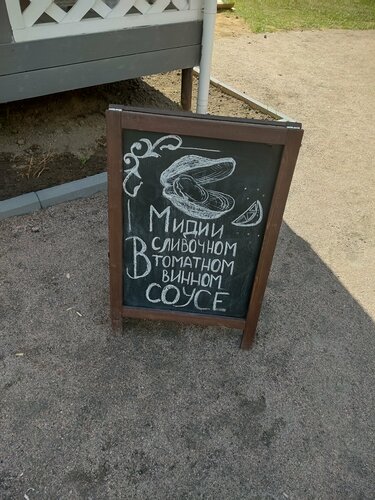 Мидии
В сливочном
томатном
винном
соусе